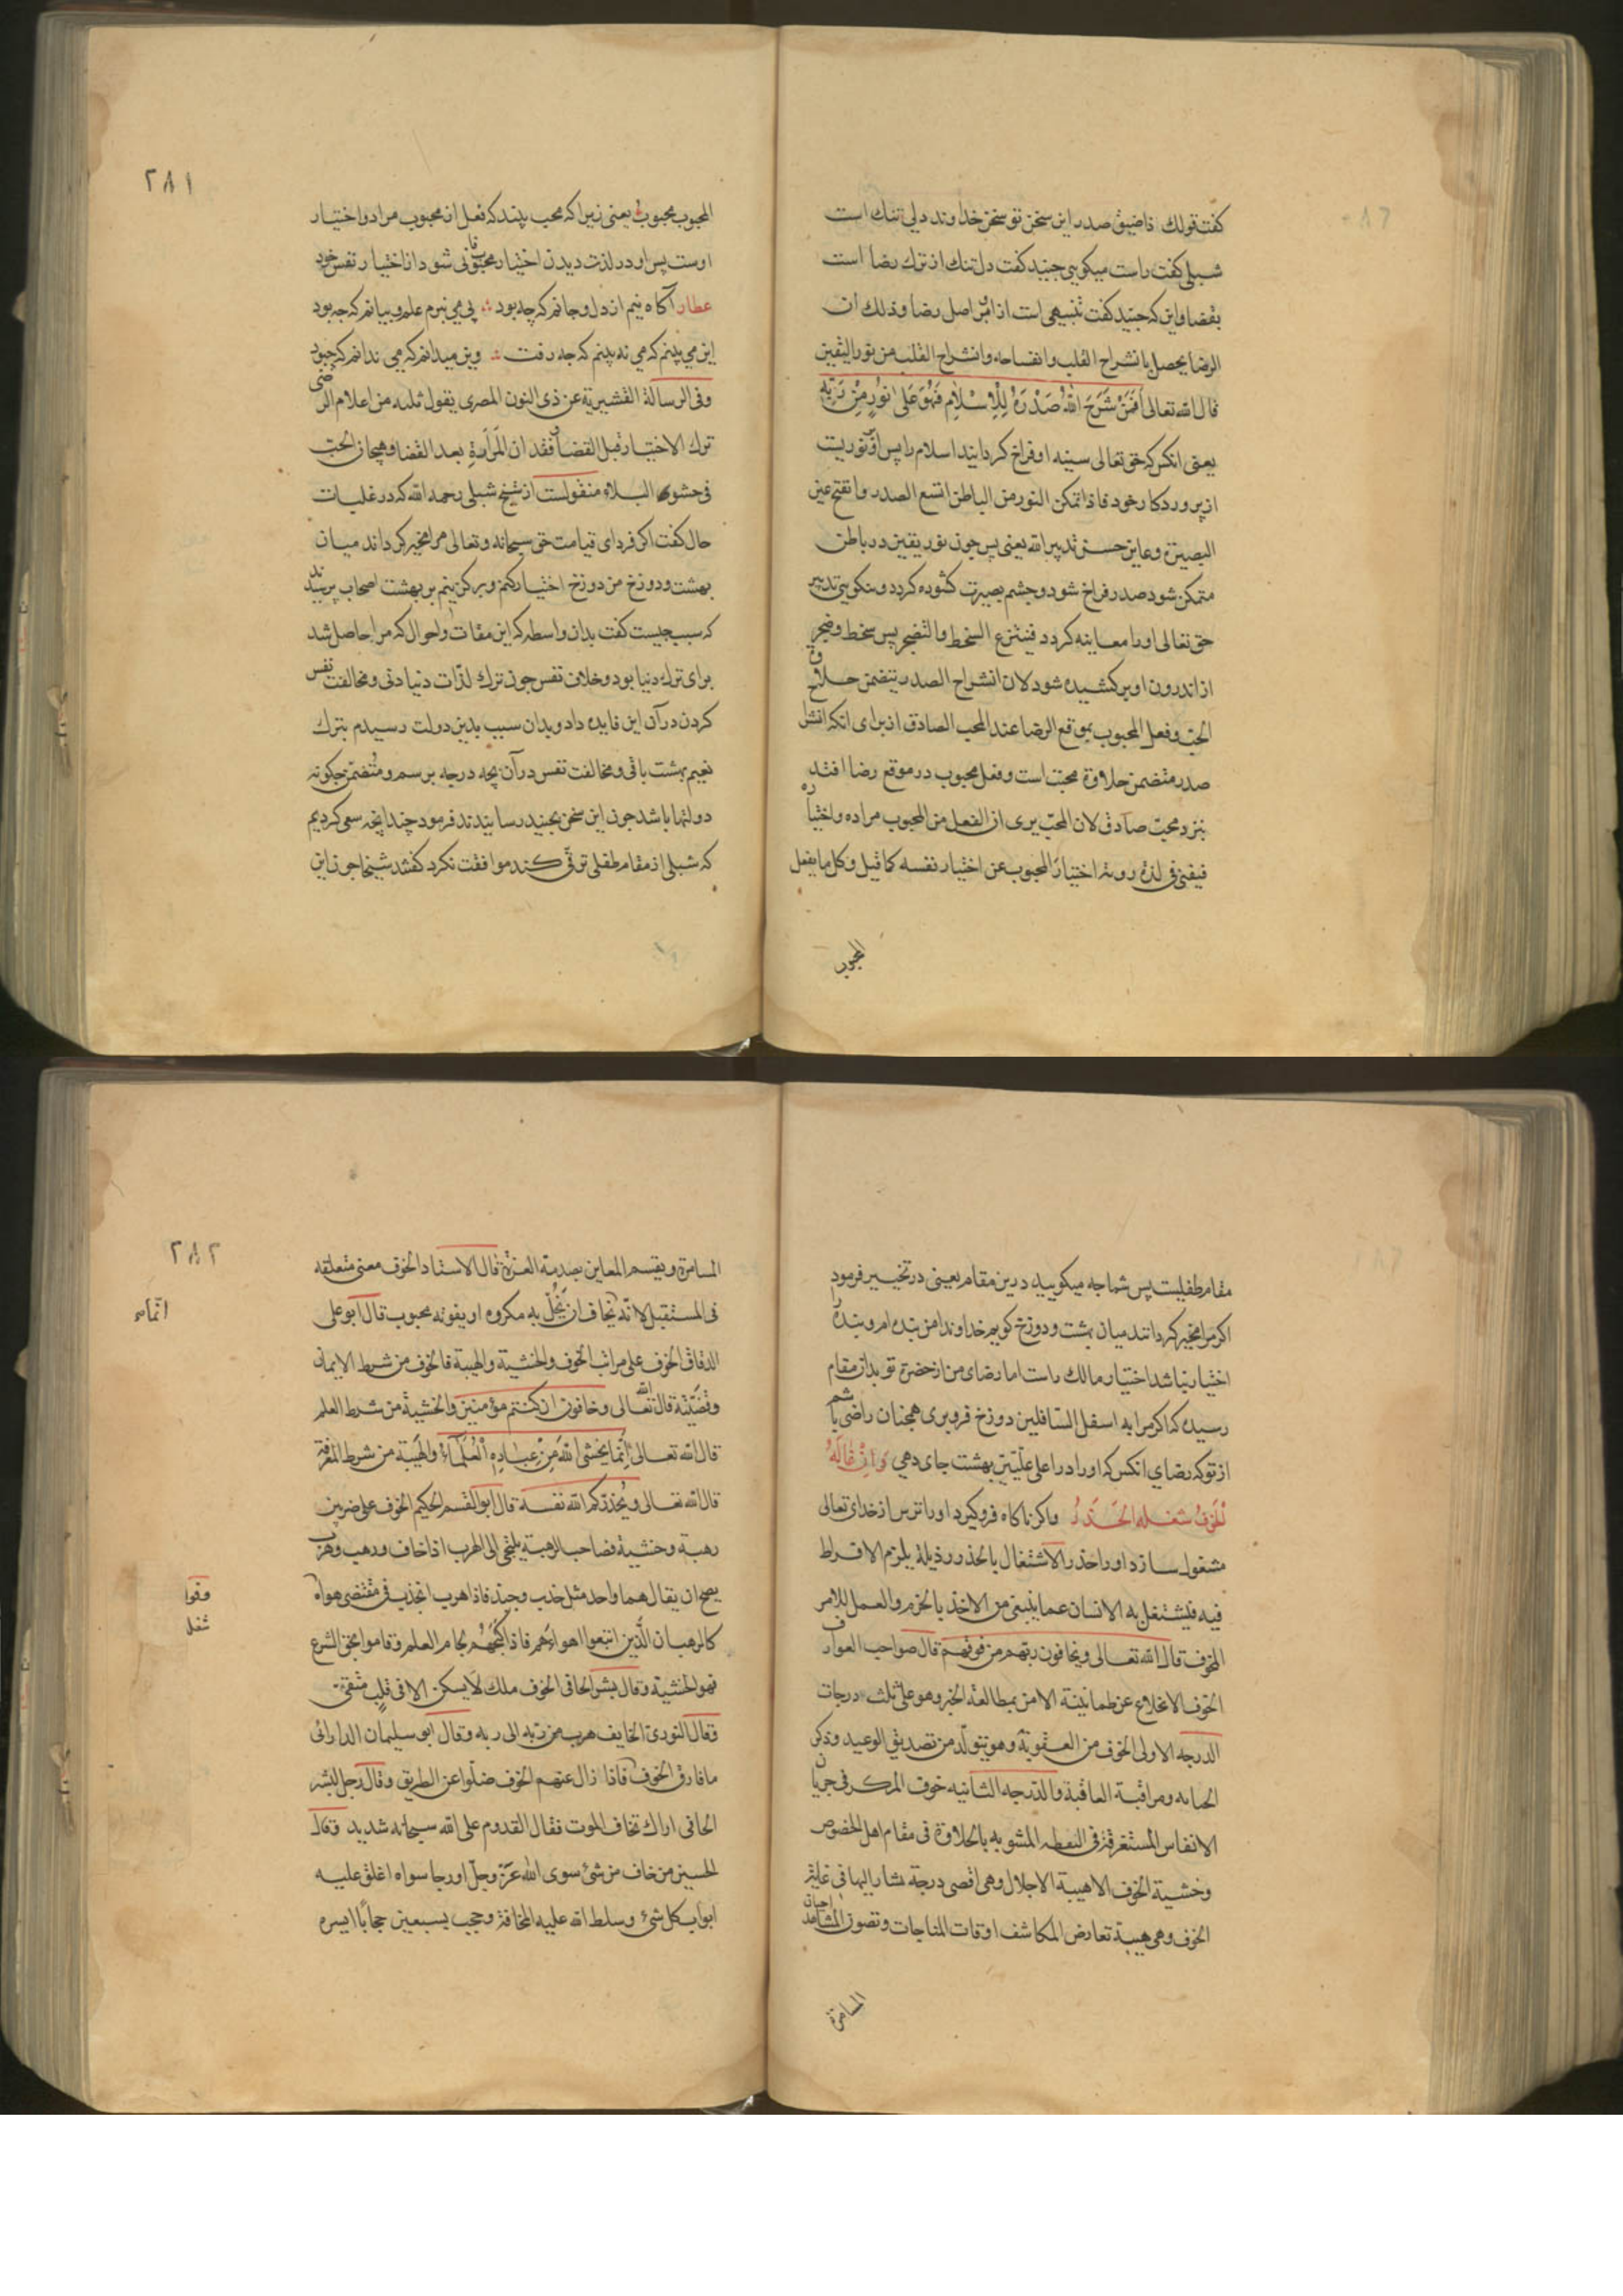 كفت قولك ذا ضيق صدر اين سخن تو سخن خداوند دلى تنك است
شبلى كفت راست ميكويى جنيد كفت دل تنك از ترك رضا است
بقضا و اين كه جنيد كفت تنبيهى است ازان بر اصل رضا و ذلك ان
الرضا يحصل بانشراح القلب وانفساحه وانشراح القلب من نور اليقين
قال الله تعالى اَفَمَنْ شَرَحَ اللّٰهُ صَدْرَهُ لِلْاِسْلَامِ فَهُوَ عَلَى نُورٍ مِنْ رَبِّهِ
يعنى انكس كه حق تعالى سينه او فراخ كردانيد اسلام را پس او بر نوريست
از پروردكار خود فاذا تمكن النور من الباطن اتسع الصدر وانفتح عين
البصيرة وعاين حسن تدبير الله يعنى پس چون نور يقين در باطن
متمكن شود صدر فراخ شود و چشم بصيرت كشوده كردد و نيكويى تدبير
حق تعالى او را معاينه كردد فينتزع السخط والتضجر پس سخط و ضجر
از اندرون او بر كشيده شود لان انشراح الصدر يتضمن حلاوة
الحب و فعل المحبوب بموقع الرضا عند المحب الصادق از براى انكه انشراح
صدر متضمن حلاوة محبت است و فعل محبوب در موقع رضا افتد
بنزد محبّ صادق لان المحبّ يرى ان الفعل من المحبوب مراده واختياره
فيفنى فى لذة روية اختيار المحبوب عن اختيار نفسه كما قيل وكل ما يفعل
المحبوب
٢٨١
المحبوب محبوب يعنى زيرا كه محب بيند كه فعل از محبوب مراد و اختيار
اوست پس او در لذت ديدن اختيار محبوب فانى شود از اختيار نفس خود
عطار آكاه نيم از دل و جانم كه چه بود ∴ پى مى نبرم علم و بيانم كه چه بود
اين مى بينم كه مى نه بينم كه چه رفت ∴ وين ميدانم كه مى ندانم كه چبود
وفى الرسالة القشيرية عن ذى النون المصرى يقول ثلثه من اعلام الرضى
ترك الاختيار قبل القضا و فقدان المَرَارَةِ بعد القضا و هيجان الحبّ
فى حشو البلاء منقولست از شيخ شبلى رحمه الله كه در غلبات
حال كفت اكر فرداى قيامت حق سبحانه و تعالى مرا مخير كرداند ميان
بهشت و دوزخ من دوزخ اختيار كنم و بر كزينم بر بهشت اصحاب پرسيدند
كه سبب چيست كفت بدان واسطه كه اين مقامات و احوال كه مرا حاصل شد
براى ترك دنيا بود و خلاف نفس چون ترك لذّات دنيا دنى و مخالفت نفس
كردن در آن اين فايده داد و بدان سبب بدين دولت رسيدم بترك
نعيم بهشت باقى و مخالفت نفس در آن بچه درجه برسم و متضمن چكونه
دولتها باشد چون اين سخن بجنيد رسانيدند فرمود چندانچه سعى كرديم
كه شبلى از مقام طفلى ترقى كند موافقت نكرد كفتند شيخا چون اين
مقام طفليست پس شما چه ميكوييد درين مقام يعنى در تخيير فرمود
اكر مرا مخير كردانند ميان بهشت و دوزخ كويم خداوندا من بنده ام و بنده را
اختيار نباشد اختيار مالك راست اما رضاى من از حضرة تو بدان مقام
رسيده كه اكر مرا به اسفل السافلين دوزخ فرو برى همچنان راضى باشم
از تو كه رضاى انكس كه او را در اعلى علّيين بهشت جاى دهى وَاِنْ غَالَهُ
الْخَوْفُ شَغَلَهُ الْحَذَرُ و اكر ناكاه فرو كيرد او را ترس از خداى تعالى
مشغول سازد او را حذر الاشتغال بالحذر رذيلة يلزم الافراط
فيه فليشتغل به الانسان عما ينبغى من الاخذ بالحزم والعمل للامر
المخوف قال الله تعالى ويخافون ربهم من فوقهم قال صواحب العوارف
الخوف الانخلاع عن طمانينة الامن بمطالعة الخبر وهو على ثلث درجات
الدرجه الاولى الخوف من العقوبة وهو يتولد من تصديق الوعيد وذكر
الجنايه ومراقبة العاقبة والدرجه الثانيه خوف المكر فى جريان
الانفاس المستغرقة فى اليقظه المشوبه بالحلاوة فى مقام اهل الخصوص
وخشية الخوف الا هيبة الاجلال وهى اقصى درجة يشار اليها فى غاية
الخوف وهى هيبة تعارض المكاشف اوقات المناجات وتصون المشاهد احيان
المسامرة
٢٨٢
المسامرة ويقسم المعاين بصدمة العزة قال الاستاد الخوف معنى متعلقه
فى المستقبل لانّه يخاف ان يَحُلّ به مكروه او يفوته محبوب قال ابو على
الدقاق الخوف على مراتب الخوف والخشية والهيبة فالخوف من شرط الايمان
وقضيّته قال الله تعالى وخافون ان كنتم مؤمنين والخشية من شرط العلم
قال الله تعالى اِنَّمَا يَخْشَى اللّٰهَ مِنْ عِبَادِهِ الْعُلَمَاءُ والهيبة من شرط المعرفة
قال الله تعالى ويُحذّركم الله نفسه قال ابو القسم الحكيم الخوف على ضربين
رهبة وخشية فصاحب الرهبة يلتجى الى الهرب اذا خاف ورهب وهرب
يصح ان يقال هما واحد مثل جذب وجبذ فاذا هرب انجذب فى مقتضى هواه
كالرهبان الذين اتبعوا اهواءهم فاذا كبحهم لجام العلم وقاموا بحق الشرع
فهو الخشية وقال بشر الحافى الخوف ملك لا يسكن الا فى قلبٍ متقى
وقال النورى الخايف هرب من ربه الى ربه وقال ابو سليمان الدارانى
ما فارق الخوف فاذا زال عنهم الخوف ضلّوا عن الطريق وقال رجل لبشر
الحافى اراك تخاف الموت فقال القدوم على الله سبحانه شديد وقال
الحسين من خاف من شئ سوى الله عزّ وجلّ او رجا سواه اغلق عليه
ابواب كل شئ وسلط الله عليه المخافة وحجب بسبعين حجابًا ايسره